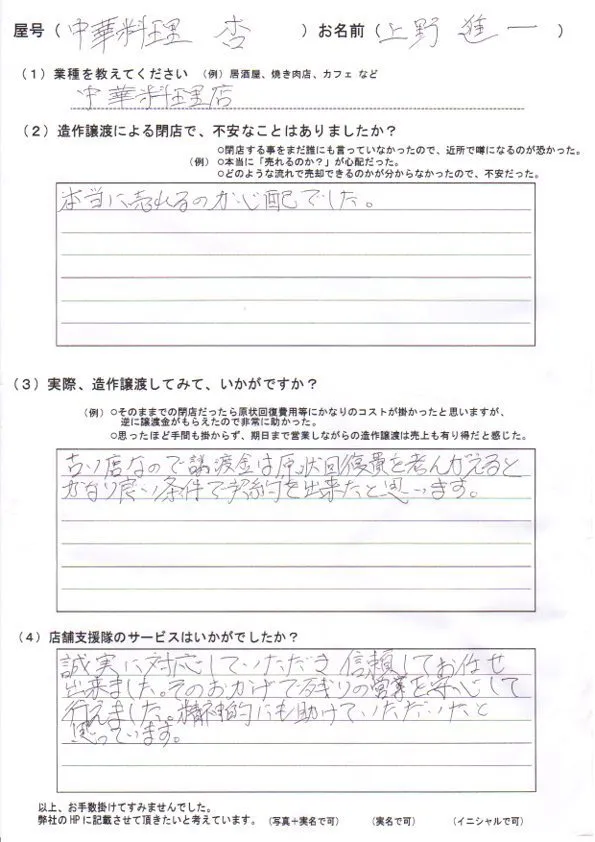 屋号（ 中華料理 杏 ）お名前（ 上野 進一 ）
（１）業種を教えてください （例）居酒屋、焼き肉店、カフェ など
中華料理店
（２）造作譲渡による閉店で、不安なことはありましたか？
○閉店する事をまだ誰にも言っていなかったので、近所で噂になるのが恐かった。
（例） ○本当に「売れるのか？」が心配だった。
○どのような流れで売却できるのかが分からなかったので、不安だった。
本当に売れるのか心配でした。
（３）実際、造作譲渡してみて、いかがですか？
（例）○そのままでの閉店だったら原状回復費用等にかなりのコストが掛かったと思いますが、
逆に譲渡金がもらえたので非常に助かった。
○思ったほど手間も掛からず、期日まで営業しながらの造作譲渡は売上も有り得だと感じた。
古い店なので譲渡金は原状回復費を考んがえると
かなり良い条件で契約を出来たと思います。
（４）店舗支援隊のサービスはいかがでしたか？
誠実に対応していただき信頼してお任せ
出来ました。そのおかげで残りの営業を安心して
行えました。精神的にも助けていただいたと
思っています。
以上、お手数掛けてすみませんでした。
弊社のHPに記載させて頂きたいと考えています。（写真＋実名で可） （実名で可） （イニシャルで可）